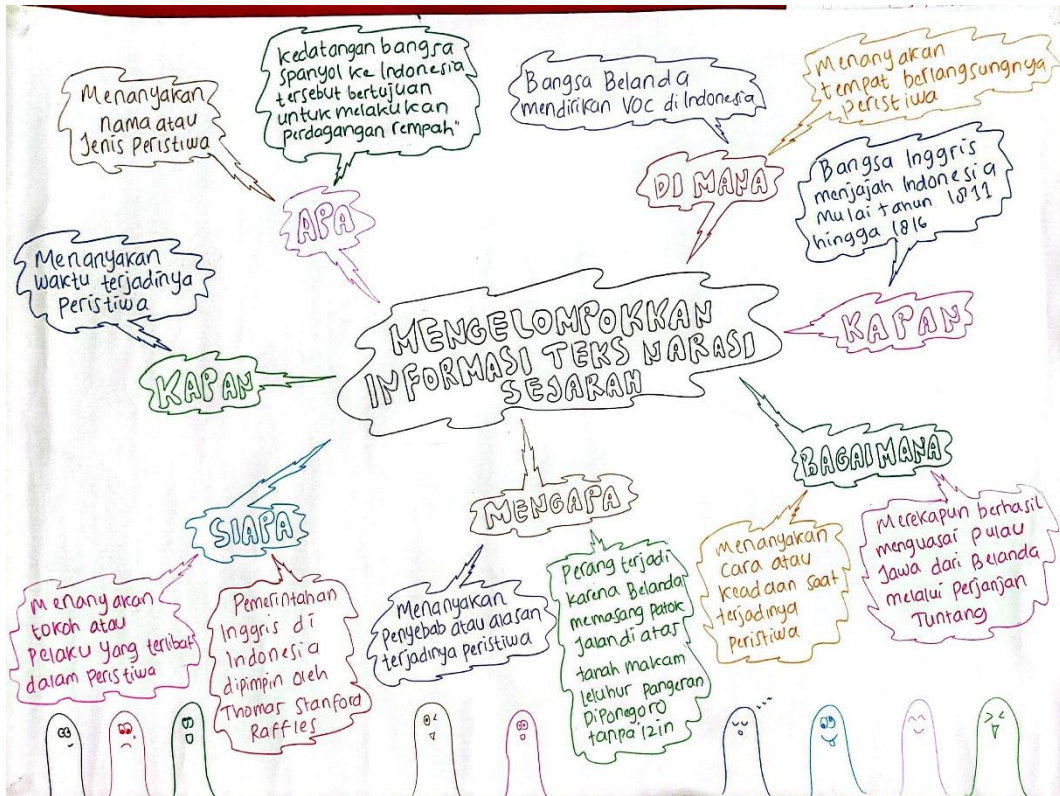 MENGELOMPOKKAN
INFORMASI TEKS NARASI
SEJARAH
APA
Menanyakan
nama atau
Jenis Peristiwa
kedatangan bangsa
spanyol ke Indonesia
tersebut bertujuan
untuk melakukan
perdagangan rempah"
DI MANA
Bangsa Belanda
mendirikan VOC di Indonesia
Menanyakan
tempat berlangsungnya
peristiwa
KAPAN
Bangsa Inggris
menjajah Indonesia
Mulai tahun 1811
hingga 1816
KAPAN
Menanyakan
waktu terjadinya
Peristiwa
SIAPA
Menanyakan
tokoh atau
Pelaku yang terlibat
dalam Peristiwa
Pemerintahan
Inggris di
Indonesia
dipimpin oleh
Thomas Stanford
Raffles
MENGAPA
Menanyakan
Penyebab atau alasan
terjadinya peristiwa
Perang terjadi
karena Belanda
memasang patok
Jalan di atas
tanah makam
leluhur pangeran
Diponegoro
tanpa izin
BAGAIMANA
menanyakan
cara atau
keadaan saat
terjadinya
Peristiwa
Merekapun berhasil
menguasai pulau
Jawa dari Belanda
melalui Perjanjan
Tuntang